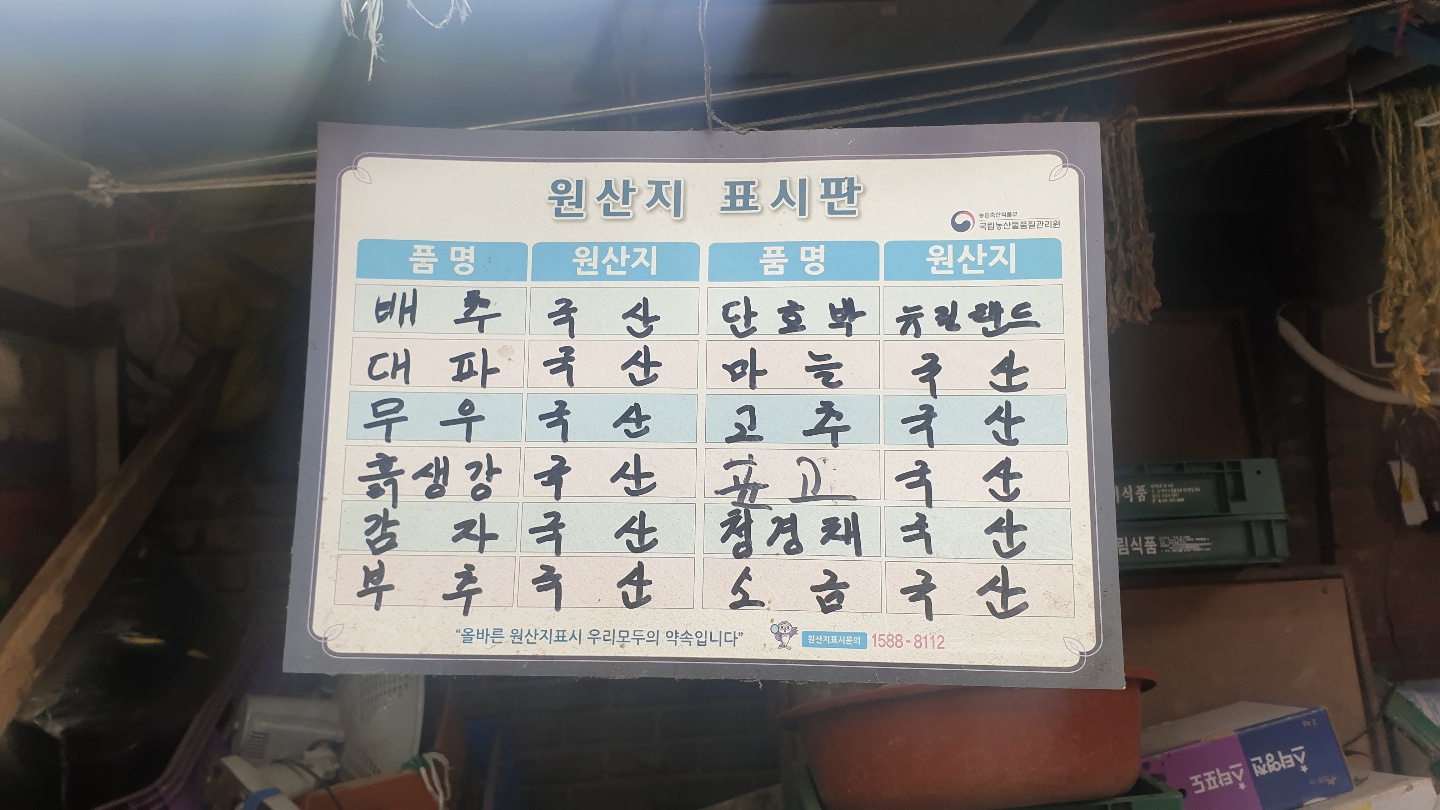 원산지 표시판
농림축산식품부
국립농산물품질관리원
품명 원산지 품명 원산지
배추 국산 단호박 뉴질랜드
대파 국산 마늘 국산
무우 국산 고추 국산
흙생강 국산 표고 국산
감자 국산 청경채 국산
부추 국산 소금 국산
"올바른 원산지표시 우리모두의 약속입니다" 원산지표시문의 1588-8112
식품
림식품
스타포도
스타영천